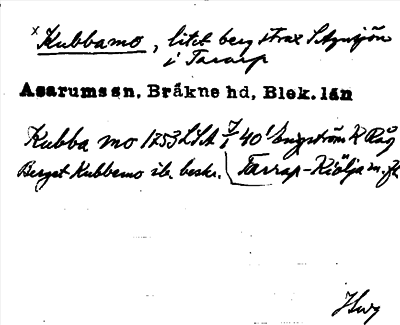 x Kubbamo, litet berg strax S Agnsjön
i Tararp
Asarums sn, Bräkne hd, Blek. län
Kubba mo 1753 LSA 7/1 40' Engström K Råg
Berget Kubbemo ib. beskr. Tararp-Kiölja m. fl.